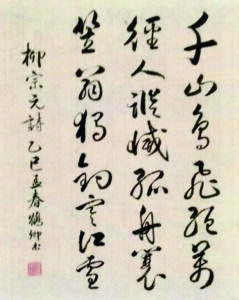 千山鳥飛絕萬
徑人蹤滅孤舟蓑
笠翁獨釣寒江雪
柳宗元詩 乙巳孟春鶴卿書